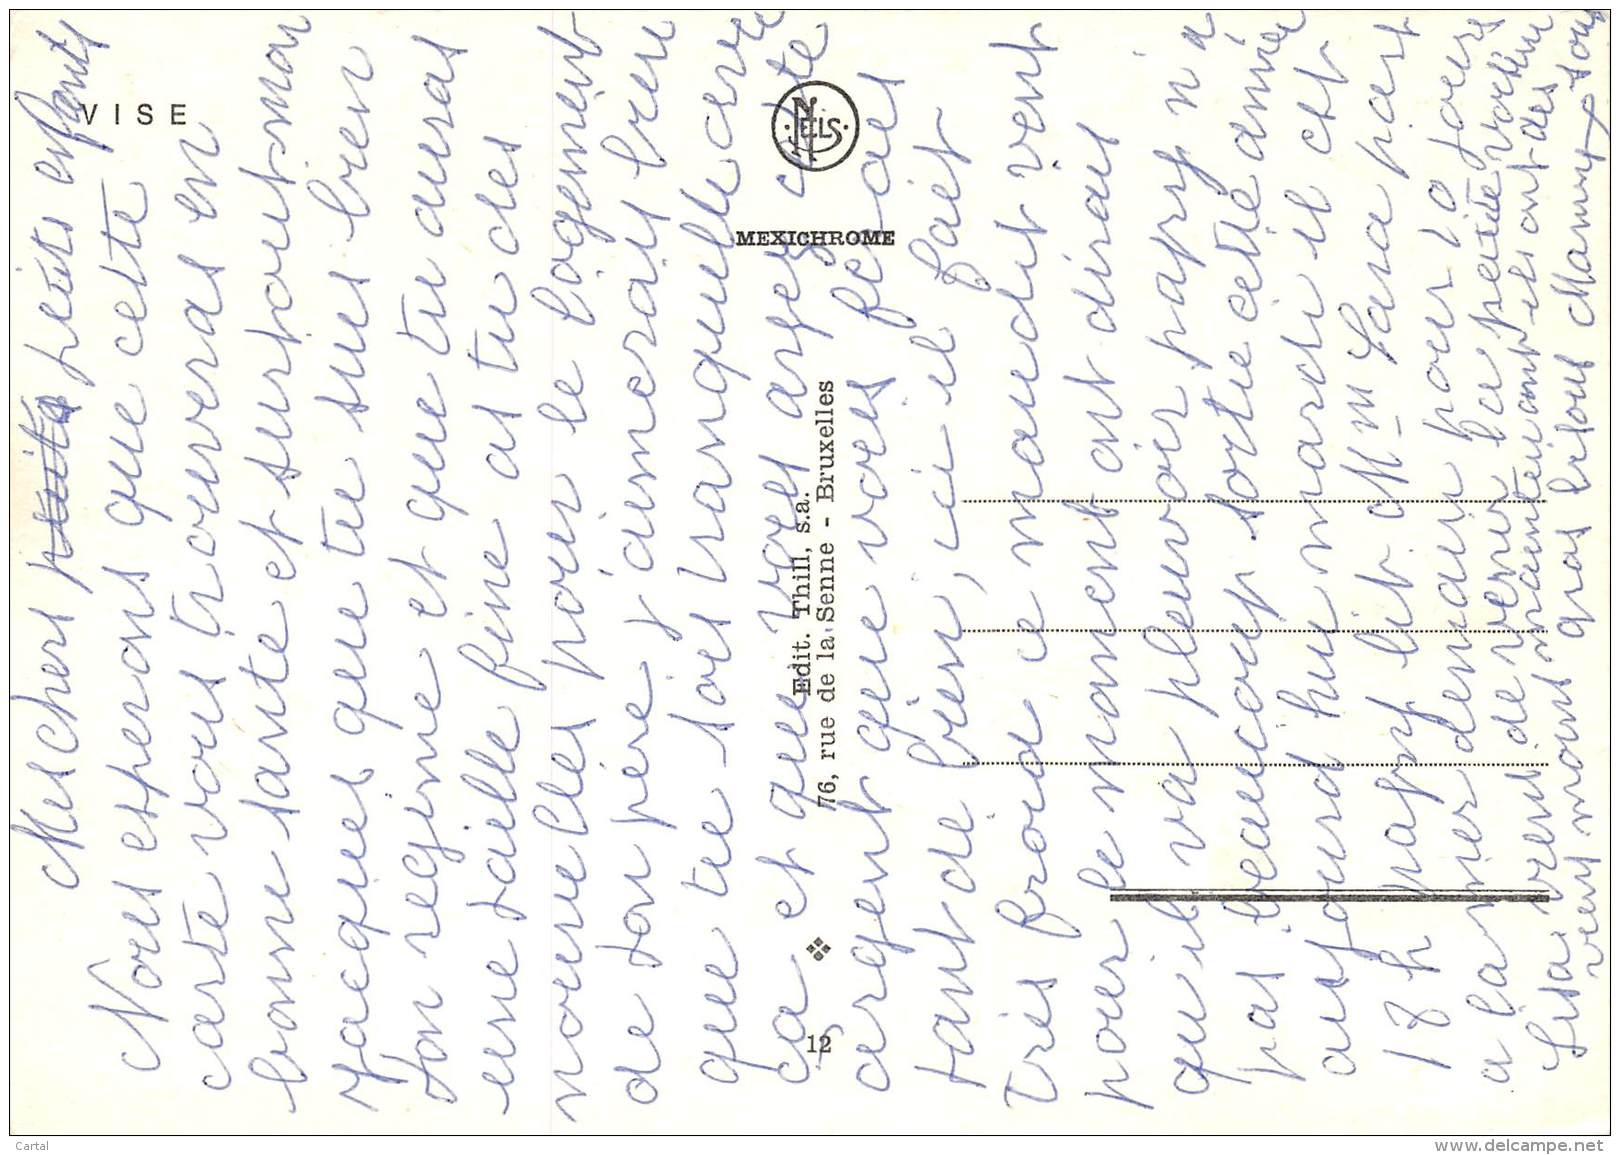 VISE
NELS
MEXICHROME
Edit. Thill, s.a.
76, rue de la Senne - Bruxelles
12
Mes chers petits petits enfants
Nous esperons que cette
carte vous trouveras en
bonne sante et surtout mon
Jacques que tu suis bien
ton regime et que tu auras
une taille fine as tu des
nouvelles pour le logement
de ton père, j'aimerais bien
que tu sois tranquille avec
ca et que vous ayez
argent que vous fer
tant de bien, ici il fait
Très froid ce maudit vent
pour le moment ont dirait
qu'il va pleuvoir papy n'a
pas beaucoup sortie cette année
aujourd hui mardi il est
18 h papy lit Mm Lara part
a la mer demain pour 10 jours
Lisa vient de venir la petite voisine
maintenant ils ont des
gros bisous Mamy